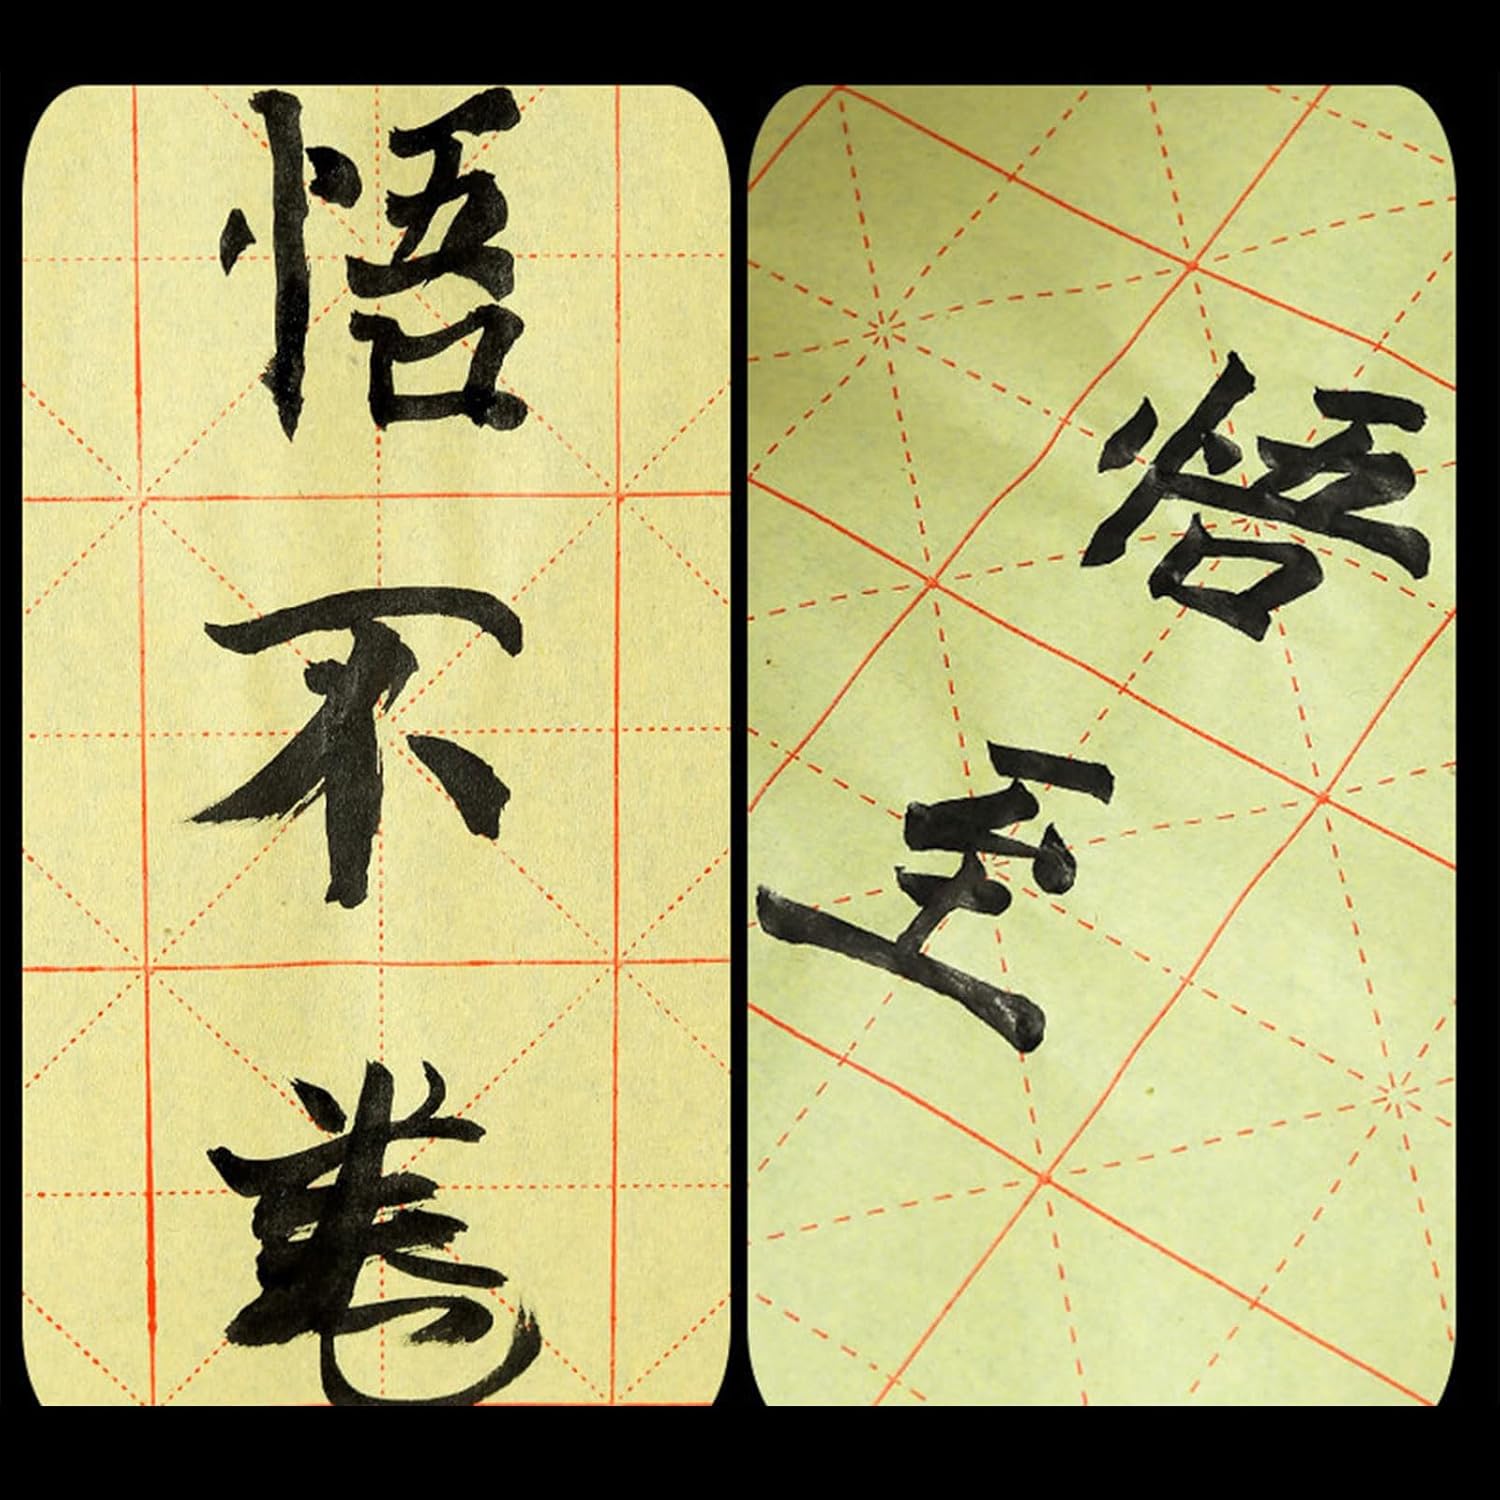 悟不卷
悟至